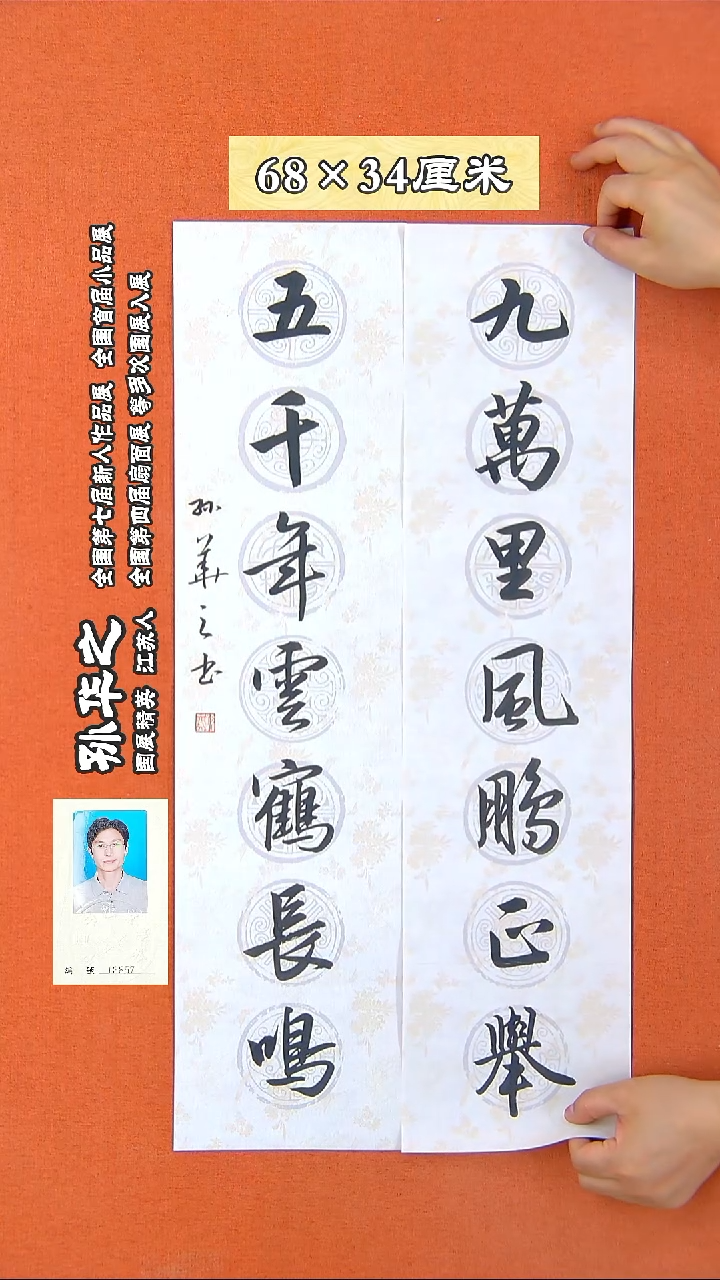 68×34厘米
九萬里風鵬正舉
五千年雲鶴長鳴
孙華之书
孙华之
国展精英 江苏人
全國第七届新人作品展 全國首届小品展
全國第四届扇面展 等多次國展入展
編號 12857